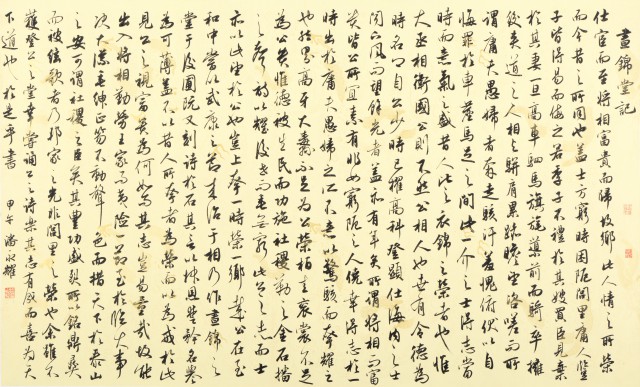 晝錦堂記
仕宦而至將相富貴而歸故鄉此人情之所榮
而今昔之所同也蓋士方窮時困阨閭里庸人孺
子皆得易而侮之若季子不禮於其嫂買臣見棄
於其妻一旦高車駟馬旗旄導前而騎卒擁
後夾道之人相與駢肩累跡瞻望咨嗟而所
謂庸夫愚婦者奔走駭汗羞愧俯伏以自
悔罪於車塵馬足之間此一介之士得志當
時而意氣之盛昔人比之衣錦之榮也惟
大丞相衛國公則不然公相人也世有令德為
時名卿自公少時已擢高科登顯仕海內之士
聞下風而望餘光者蓋亦有年矣所謂將相而富
貴皆公所宜素有非如窮阨之人僥倖得志於一
時出於庸夫愚婦之不意以驚駭而夸耀之
也然則高牙大纛不足為公榮桓圭袞裳不足
為公貴惟德被生民而功施社稷勒之金石播
之聲詩以耀後世而垂無窮此公之志而士
亦以此望於公也豈止夸一時榮一鄉哉公在至
和中嘗以武康之節來治于相乃作晝錦之
堂于後圃既又刻詩於石其言以快恩讎矜名譽
為可薄蓋不以昔人所夸者為榮而以為戒於此
見公之視富貴為何如其志豈易量哉故能
出入將相勤勞王家而夷險一節至於臨大事
決大議垂紳正笏不動聲色而措天下於泰山
之安可謂社稷之臣矣其豐功盛烈所以銘鼎彝
而被弦歌者乃邦家之光非閭里之榮也余雖不
獲登公之堂幸嘗誦公之詩樂其志有成而喜為天
下道也於是乎書 甲午 潘永耀